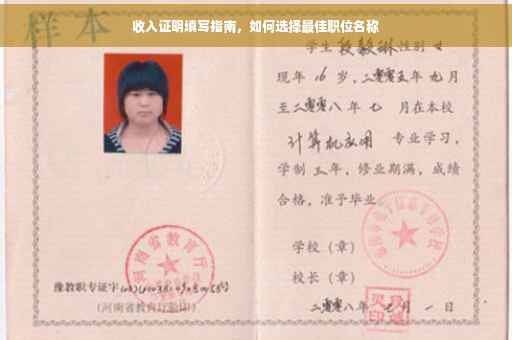 收入证明填写指南，如何选择最佳职位名称
样本
学生 段毅琳 性别 女
现年 16 岁，二零零五年 九 月
至二零零八年 七 月在本校
计算机应用 专业学习，
学制 三 年，修业期满，成绩
合格，准予毕业
学校（章）
校长（章）
河南省教育厅
豫教职专证字
（河南省教育厅验印）
二零零八年 七 月 一 日